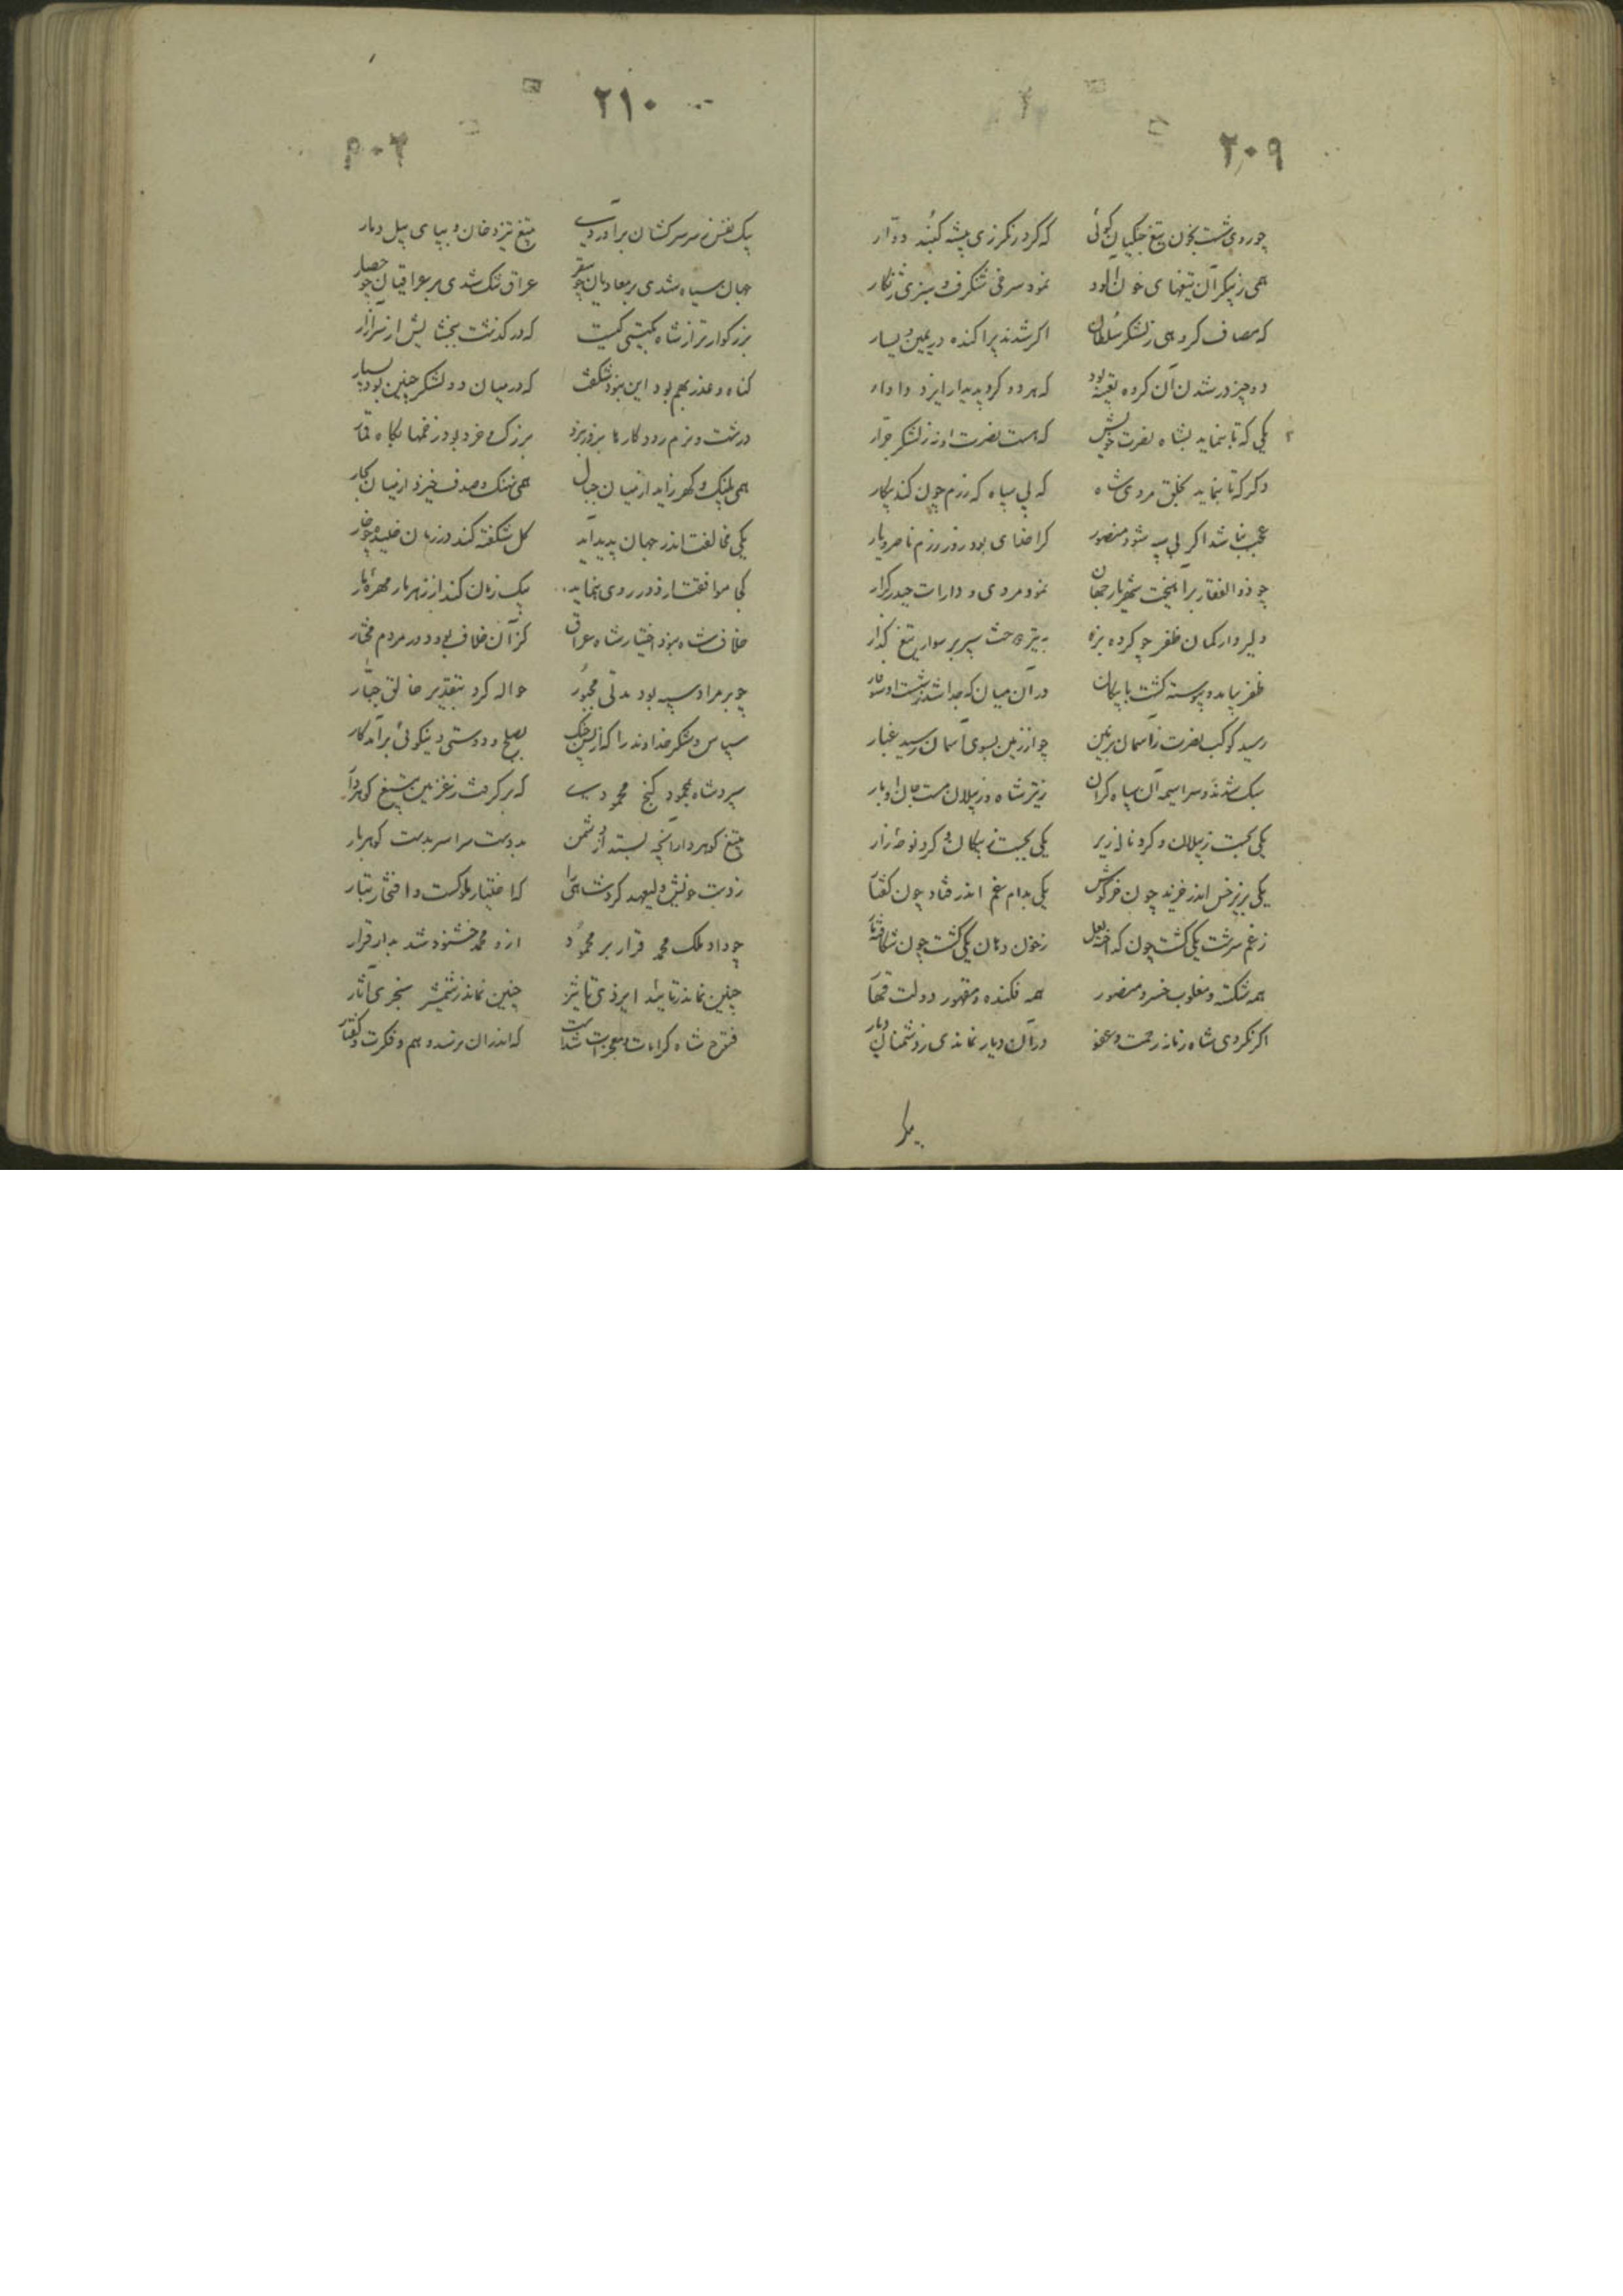 ۲۰۹
چو روی شست بخون تیغ جنگیان گوئی که کرد رنگرزی پیشه گنبد دوار
همی ز پیکر آن تیغهای خون آلود نمود سرخی شنگرف و سبزی زنگار
که مصاف گروهی ز لشکر سلطان اگر شدند پراکنده در یمین و یسار
دو چیز در شدن آن گروه تعبیه بود که هر دو کرد پدیدار ایزد دادار
یکی که تا بنماید بشاه نصرت خویش که هست نصرت او نه ز لشکر جرار
دگر که تا بنماید بخلق مردی شاه که بی سپاه که رزم چون کند پیکار
عجب نباشد اگر بی سپه شود منصور کرا خدای بود روز رزم ناصر و یار
چو ذوالفقار برآهیخت شهریار جهان نمود مردی و دارات حیدر کرار
دلیر وار کمان ظفر چو کرد بزه به تیر خست سپر بر سوار تیغ گذار
ظفر بیامد و پیوسته گشت با پیکان در آن میان که جدا شد ز شست او سوفار
رسید کوکب نصرت ز آسمان بزمین چو از زمین بسوی آسمان رسید غبار
سبک شدند و سراسیمه آن سپاه گران ز تیر شاه و ز پیلان مست جان اوبار
یکی بجست ز پیلان و کرد ناله زیر یکی بخست ز پیکان و کرد نوحه زار
یکی بزیر خس اندر خزید چون خرگوش یکی بدام غم اندر فتاد چون کفتار
ز غم سرشت یکی گشت چون که اخته لعل ز خون دهان یکی گشت چون شکافته نار
همه شکسته و مغلوب خسرو منصور همه فکنده و مقهور دولت قهار
اگر نکردی شاه زمانه رحمت و عفو در آن دیار نماندی ز دشمنان دیار
۲۱۰
بیک نفس ز سر سرکشان برآوردی بتیغ تیز دخان و بپای پیل دمار
جهان سیاه شدی بر معادیان چو سقر عراق تنگ شدی بر عراقیان چو حصار
بزرگوارتر از شاه بگیتی کیست که در گذشت بخشایش از سر آزار
گناه و عذر بهم بود این نبود شگفت که در میان دو لشکر چنین بود بسیار
درشت و نرم رود کارها بروز نبرد بزرگ و خرد بود زخمها بگاه قمار
همی پلنگ و گهر زاید از میان جبال همی نهنگ و صدف خیزد از میان بحار
یکی مخالفت اندر جهان پدید آید گل شکفته کند در زمان خلیده چو خار
یکی موافقت از دور روی بنماید بیک زمان کند از زهر مار مهره مار
خلاف شاه نبود اختیار شاه عراق کز آن خلاف بی ود در مردم مختار
چو بر مراد سپه بود مدتی مجبور حواله کرد بتقدیر خالق جبار
سپاس و شکر خداوند را که از پس جنگ بصلح و دوستی و نیکوئی برآمد کار
سپرد شاه بمحمود گنج محمودی که بر گرفت ز غزنین بتیغ گوهردار
بتیغ گوهردار آنچه بستد از دشمن بدوست سراسر بدست گوهربار
ز دست خویش ولیعهد کرد شاهی را که اختیار ملوکست و افتخار تبار
چو داد ملک محمد قرار بر محمود ازو محمد خشنود شد بدار قرار
چنین نماید تائید ایزدی تاثیر چنین نماید شمشیر سنجری آثار
فتوح شاه کرامات و معجزات شدست که اندران نرسد وهم و فکرت و گفتار